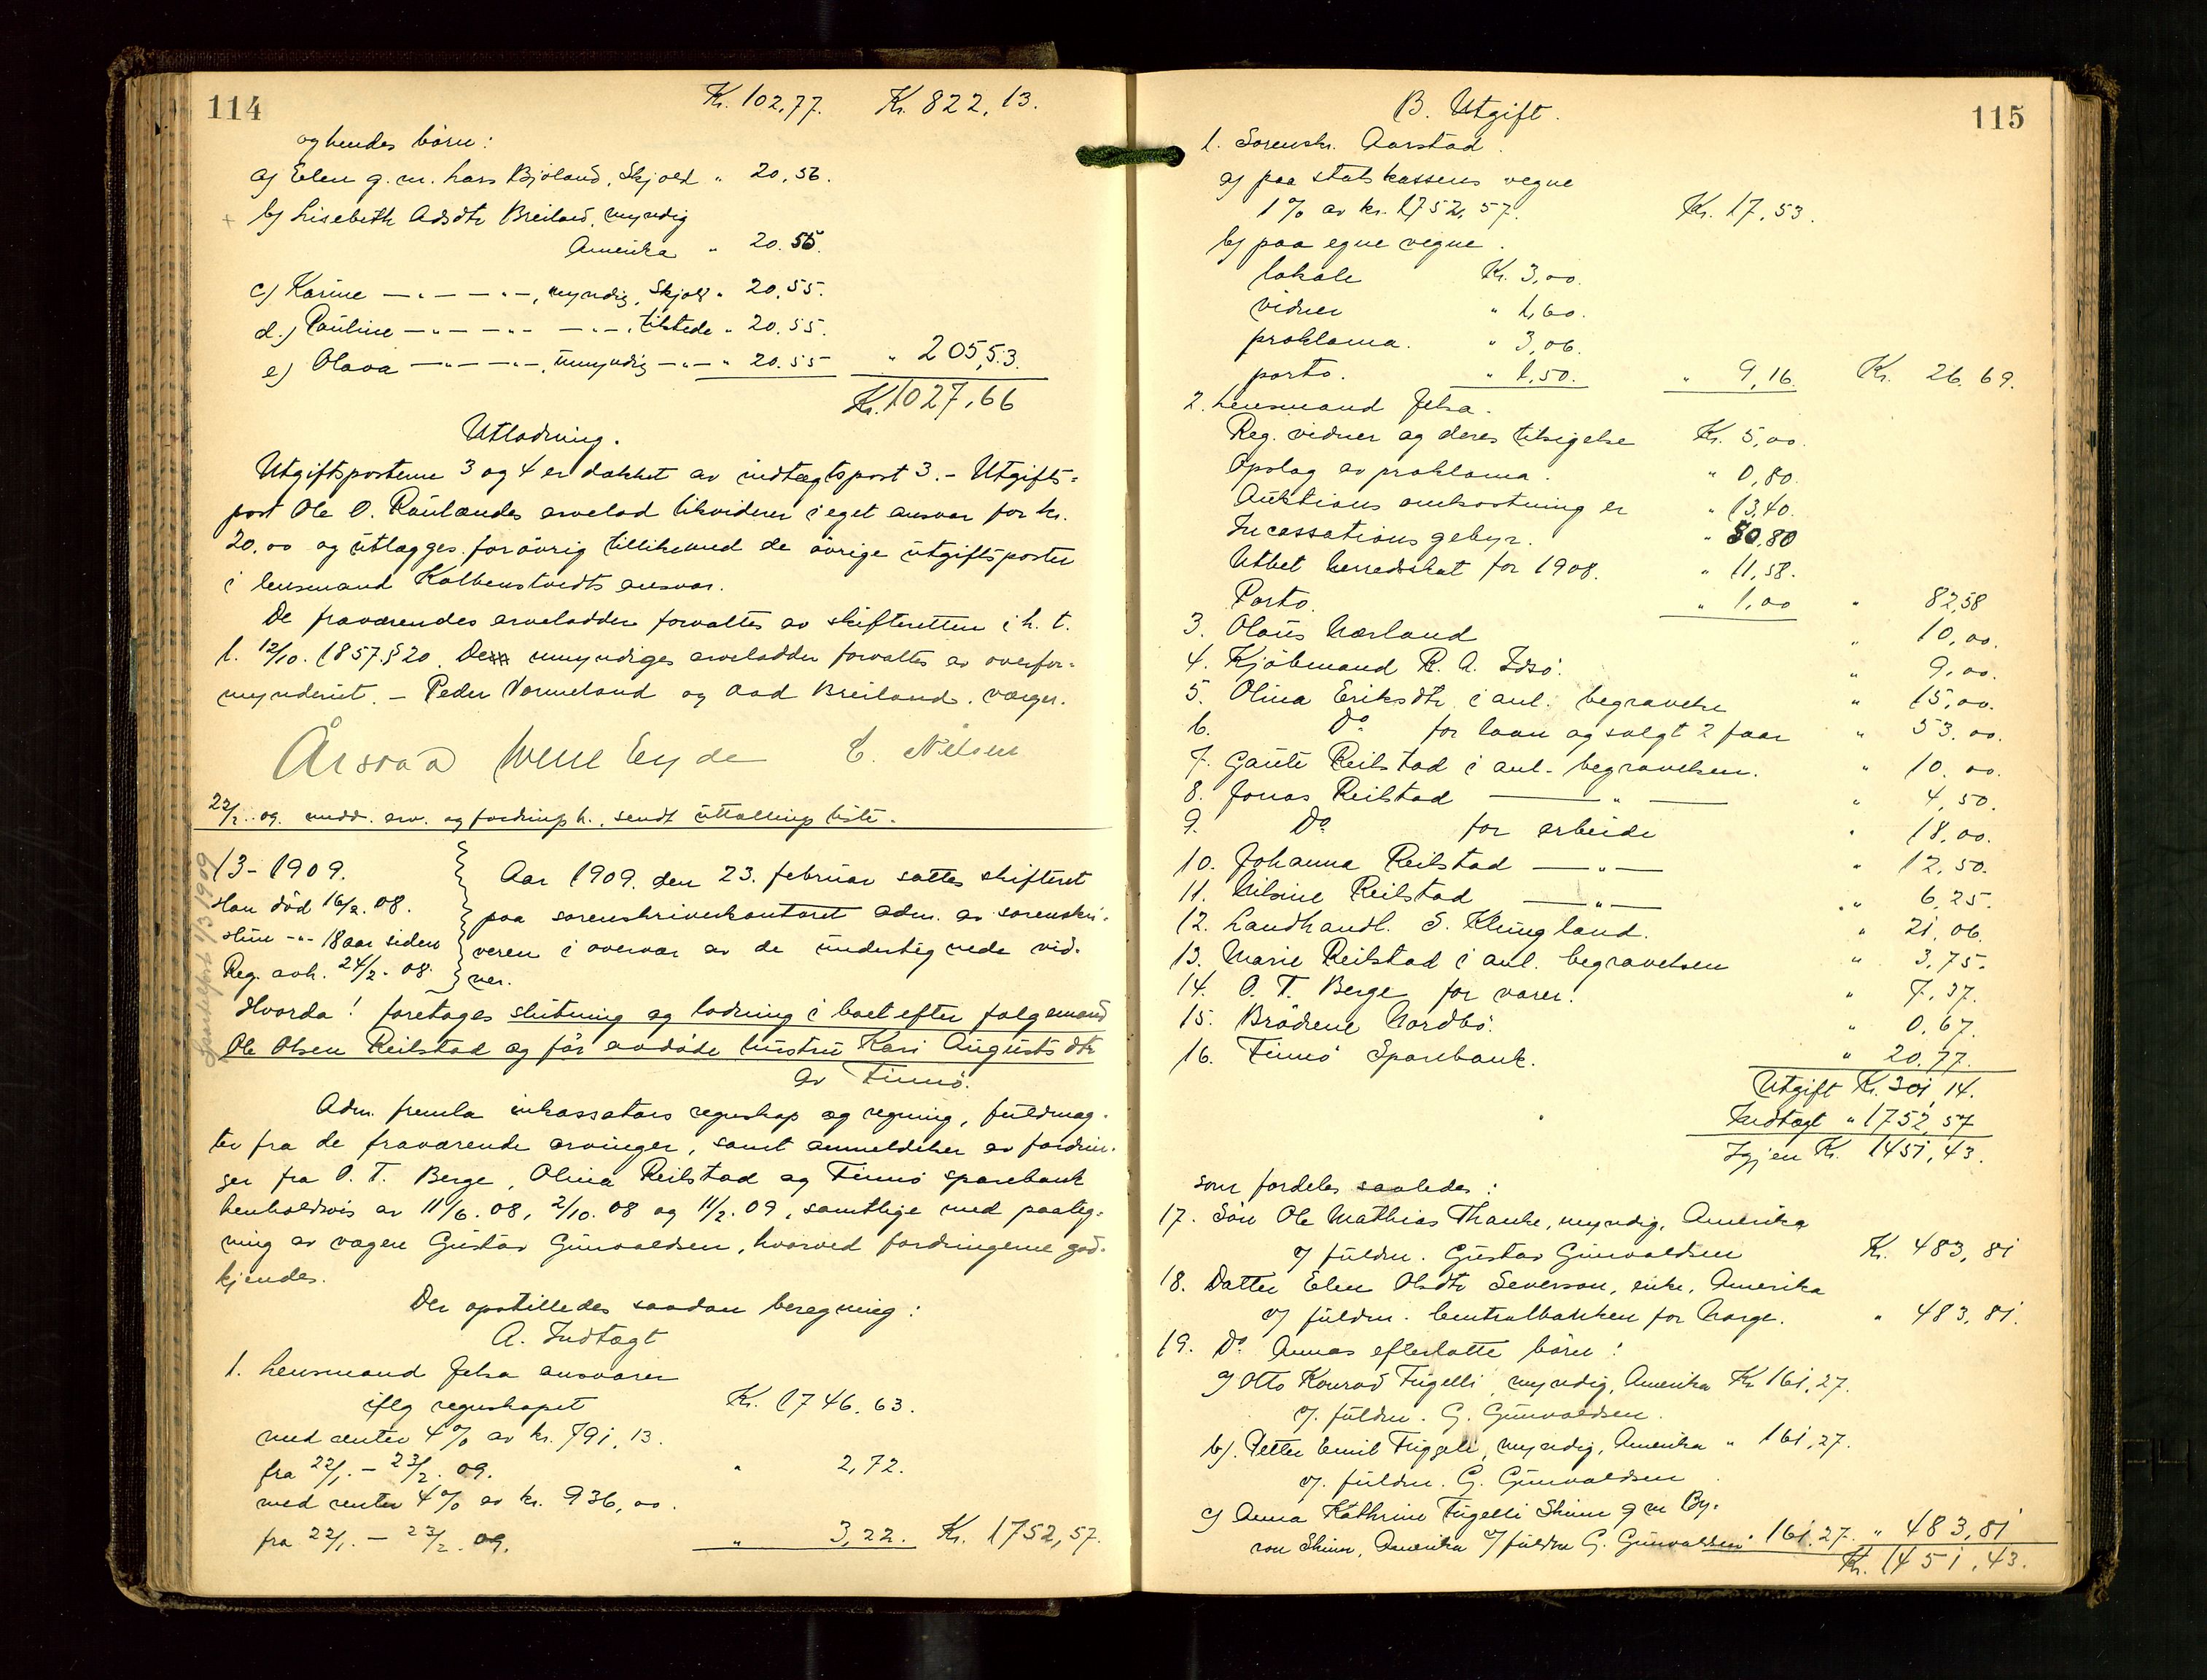 114
Kr. 102,77. Kr. 822,13.
og hendes börn:
a) Elen g. m. Lars Bjoland, Skjold " 20,56.
+ b) Lisebeth Adsdtr Breiland, myndig
Amerika " 20.56.
c) Karine —"— —"—, myndig, Skjold " 20,55.
d.) Pauline —"— —"— —"—, tilstede " 20.55.
e) Olava —"— —"—, umyndig —"— " 20.55 " 205,53.
Kr. 1027,66
Utlodning.
Utgiftsposterne 3 og 4 er dækket av indtægtspost 3. - Utgifts-
post Ole O. Raulandes arvelod likviderer i eget ansvar for kr.
20,00 og utlægges forövrig tillikemed de övrige utgiftsposter
i lensmand Kolbenstvedts ansvar.
De fraværendes arvelodder forvaltes av skifteretten i h. t.
l. 12/10. 1857 § 20. De umyndiges arvelodder forvaltes av overfor-
mynderiet. - Peder Vormeland og Aad Breiland. værger.
Årstad E. Nilsen
22/2. 09. medd. arv. og fordringsh., sendt uttællings liste.
13 - 1909.
Han död 16/2. 08.
Hun -"- 18 aar siden
Reg. avh. 24/2. 08.
1/3 1909
Aar 1909. den 23. februar sattes skifteret
paa sorenskriverkontoret adm. av sorenskri-
veren i overvær av de undertegnede vid-
ner.
Hvorda! foretages slutning og lodning i boet efter folgemand
Ole Olsen Reilstad og för avdöde hustru Kari Augustsdtr
av Finnö.
Adm. fremla inkassators regnskap og regning, fuldmag-
ter fra de fraværende arvinger, samt anmeldelser av fordrin-
ger fra O. T. Berge, Olina Reilstad og Finnö sparebank
henholdsvis av 11/6. 08, 2/10. 08 og 11/2. 09, samtlige med paateg-
ning av vægere Gustav Gunvaldsen, hvorved fordringerne god-
kjendes.
Der opstilledes saadan beregning:
A. Indtægt
1. Lensmand Jelsa ansvarer
iflg regnskapet Kr. 1746.63.
med renter 4% av kr. 791,13.
fra 22/1. - 23/2. 09. " 2,72.
med renter 4% av kr. 936,00.
fra 22/1. - 23/2. 09. " 3,22. Kr. 1752,57.
115
B. Utgift.
1. Sorenskr. Aarstad.
a) paa statskassens vegne
1% av kr. 1752,57. Kr. 17,53.
b) paa egne vegne.
lokale Kr. 3,00.
vidner " 1,60.
proklama. " 3,06.
porto. " 1,50. " 9,16. Kr. 26,69.
2. Lensmand Jelsa.
Reg. vidner og deres tilsigelse Kr. 5,00.
Opslag av proklama. " 0,80.
Auktions omkostninger " 13,40.
Incassationsgebyr. " 50,80
Utbet herredskat for 1908. " 11,58.
Porto. " 1,00 " 82,58
3. Olaus Nærland " 10,00.
4. Kjöbmand R. A. Idsö. " 9,00.
5. Olina Eriksdtr i anl. begravelse " 15,00.
6. Do for laan og solgt 2 faar " 53.00.
7. Gaute Reilstad i anl. begravelsen. " 10.00.
8. Jonas Reilstad —"— " 4,50.
9. Do for arbeide " 18,00.
10. Johanna Reilstad —"— " 12,50.
11. Nilsine Reilstad —"— " 6,25.
12. Landhandl. S. Klungland. " 21,06.
13. Marie Reilstad i anl. begravelsen " 3,75.
14. O. T. Berge for varer. " 7,37.
15. Brödrene Nordbö. " 0,67.
16. Finnö Sparebank. " 20.77.
Utgift Kr. 301,14.
Indtægt " 1752,57
Igjen Kr. 1451,43.
som fordeles saaledes:
17. Sön Ole Mathias Thanke, myndig, Amerika
v/ fuldm. Gustav Gunvaldsen Kr. 483,81
18. Datter Elen Olsdtr Severson, enke, Amerika
v/ fuldm. Centralbanken for Norge. " 483,81.
19. Do Annas efterlatte börn:
a) Otto Konrad Fugelli, myndig, Amerika Kr 161,27.
v/. fuldm. G. Gunvaldsen.
b). Petter Emil Fugelli, myndig, Amerika " 161,27.
v/. fuldm. G. Gunvaldsen.
c) Anna Kathrine Fugelli Skinn g m By-
ron Skinn, Amerika v/ fuldm G. Gunvaldsen " 161.27. " 483,81
Kr. 1451,43.